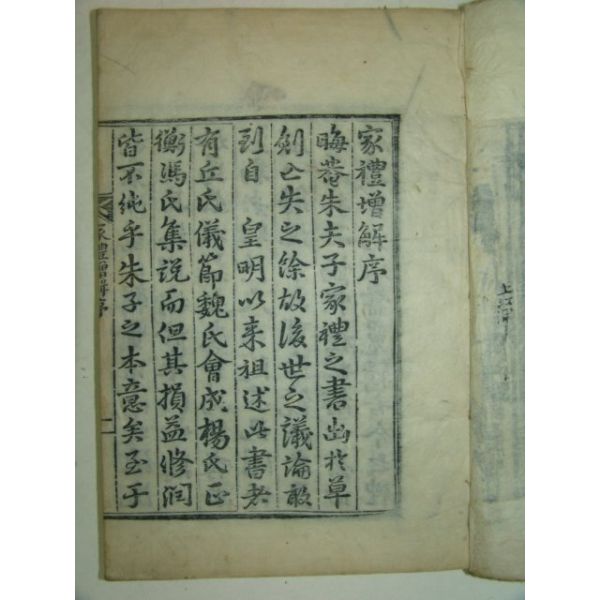 家禮增解序
晦菴朱夫子家禮之書出於草
剏亡失之餘故後世之議論敢
到自 皇明以來祖述此書者
有丘氏儀節魏氏會成楊氏正
衡馮氏集說而但其損益修潤
皆不純乎朱子之本意矣至于
家禮增解序